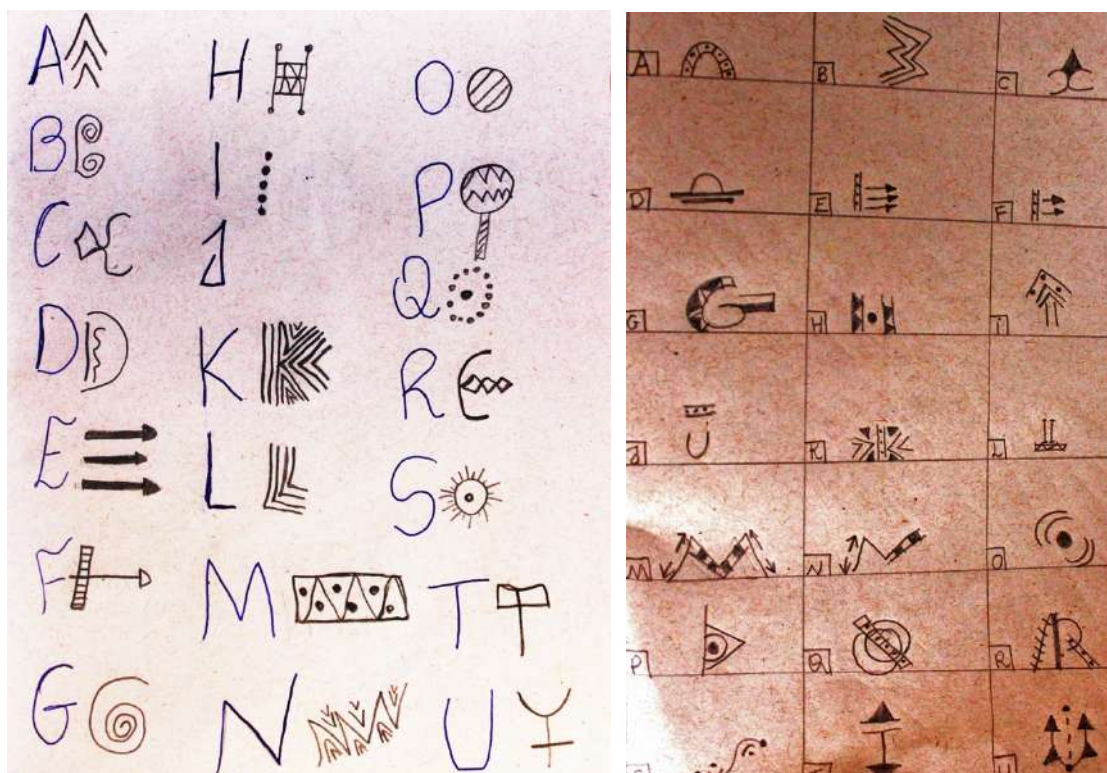 A
B
C
D
E
F
G
H
I
J
K
L
M
N
O
P
Q
R
S
T
U
A B C
D E F
G H i
J K L
M N O
P Q R